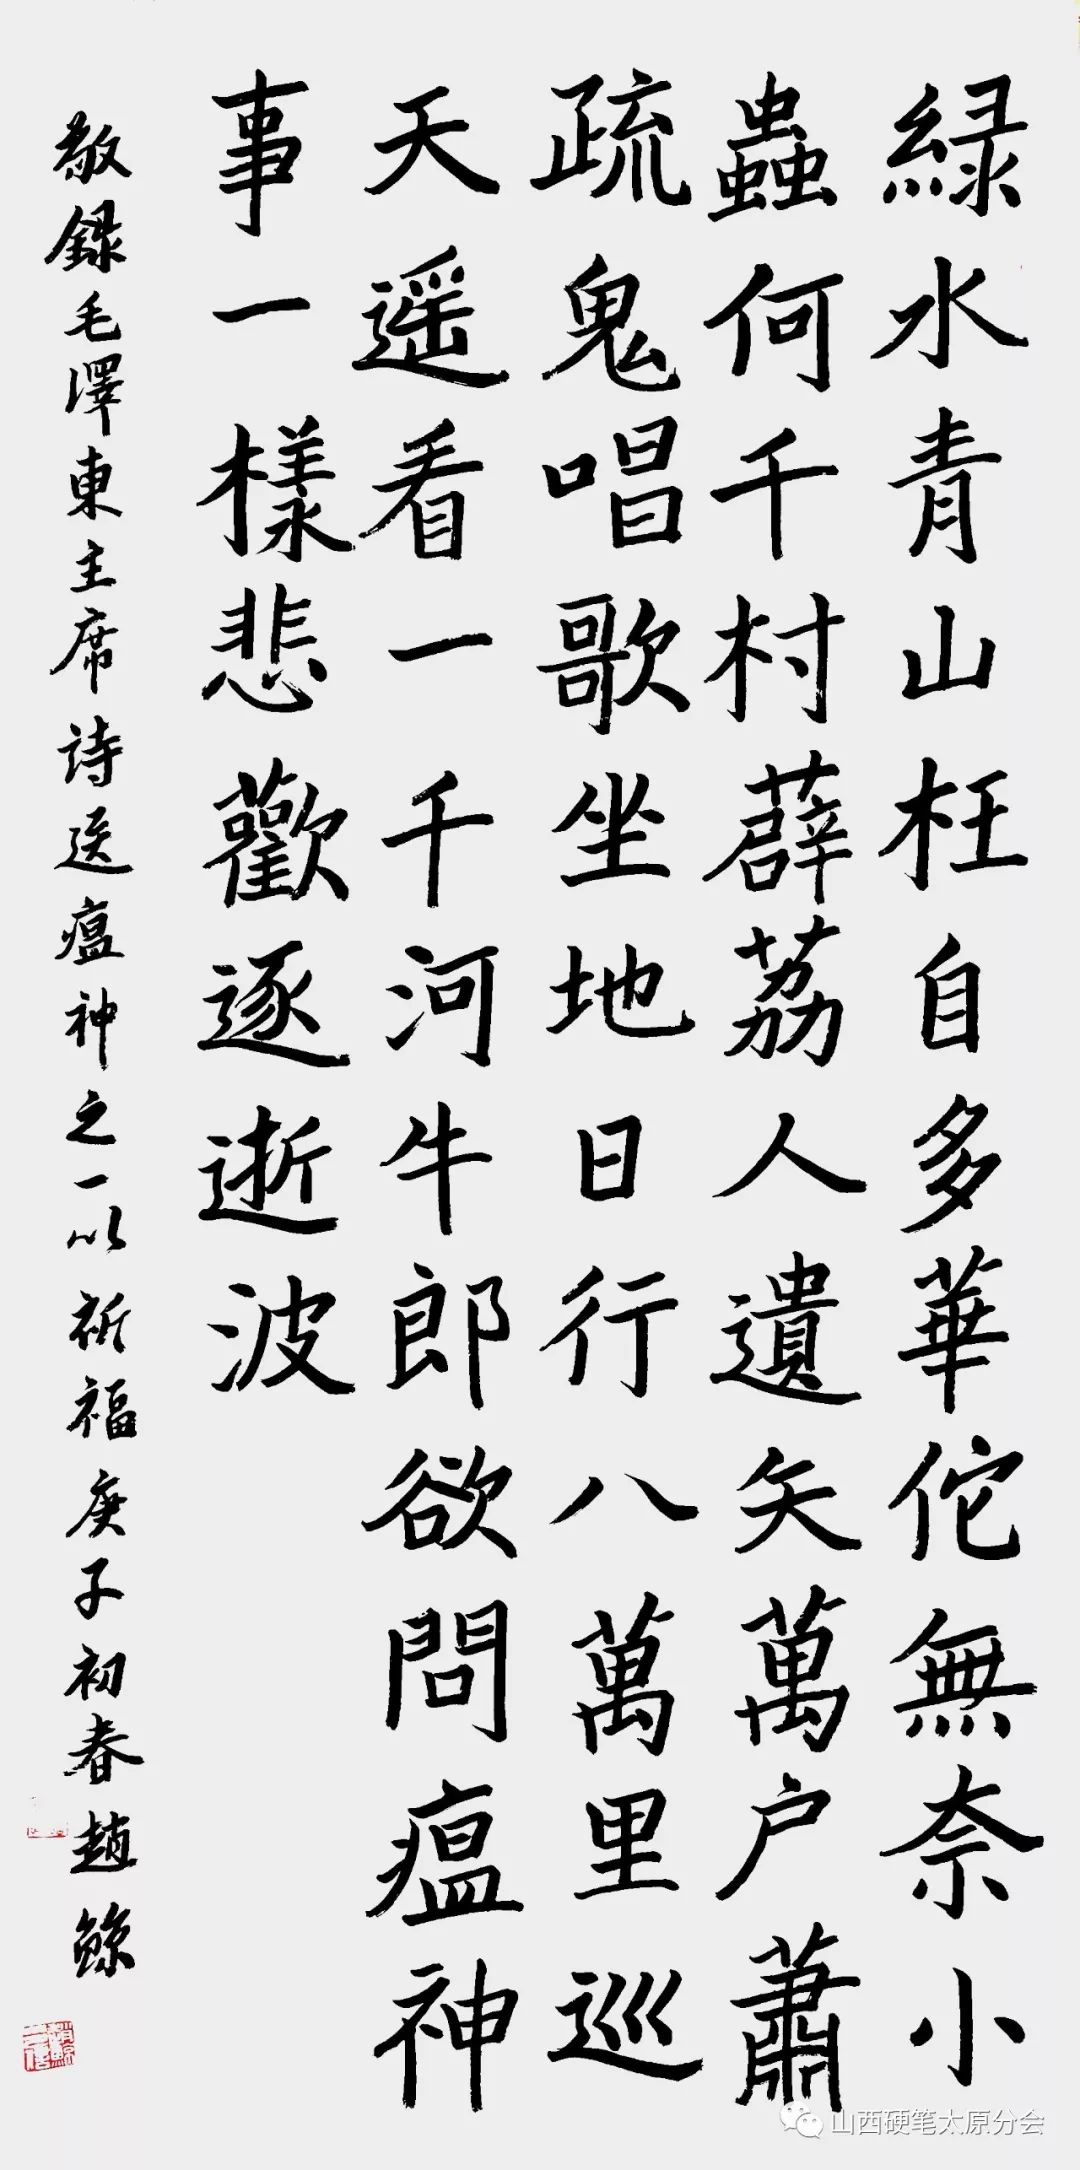 緑水青山枉自多華佗無奈小
蟲何千村薜荔人遺矢萬户蕭
疏鬼唱歌坐地日行八萬里巡
天遥看一千河牛郎欲問瘟神
事一樣悲歡逐逝波
敬録毛澤東主席詩送瘟神之一以祈福庚子初春趙鯨
山西硬笔太原分会